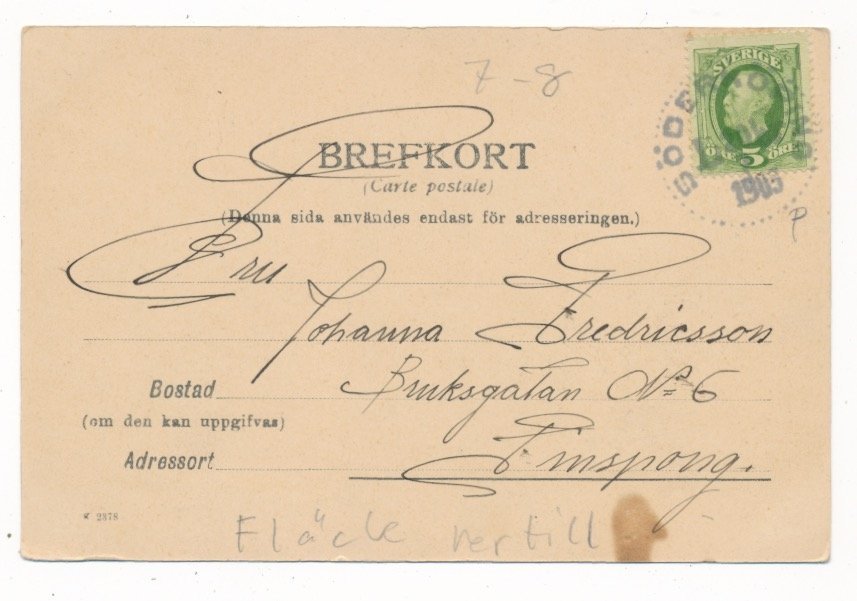 7-8
SVERIGE
ÖRE 5 ÖRE
1903
BREFKORT
(Carte postale)
(Denna sida användes endast för adresseringen.)
P
Fru
Johanna Fredricsson
Bostad Bruksgatan No 6
(om den kan uppgifvas)
Adressort Finspong.
2378
Fläck nertill